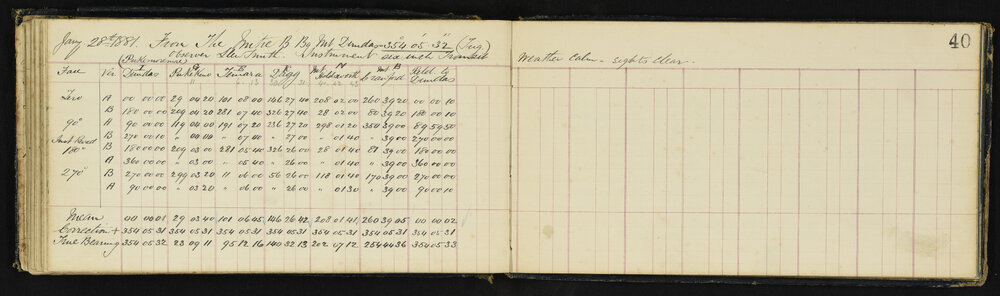 Jany 28th 1881. From The Mitre B By Mt Dundas 354° 05' 32" (Trig.)
40
Observer Sten Smith. Instrument six inch Transit
Weather Calm - sights clear.
Face Ver Dundas Pukekino Tiniara Pigg Mt Holdsworth Crawford Retd. to Dundas
Zero A 00 00 00 29 04 20 101 08 00 146 27 40 208 02 00 260 39 20 00 00 10
B 180 00 00 209 04 20 281 07 40 326 27 40 28 02 00 80 39 20 180 00 10
90° A 90 00 00 119 04 00 191 07 20 236 27 20 298 01 20 350 39 00 89 59 50
B 270 00 10 " 04 00 " 07 40 " 27 00 " 01 40 " 39 00 270 00 00
Inst Revsd
180° B 180 00 00 209 03 00 281 05 40 326 26 00 28 01 40 81 39 00 180 00 00
A 360 00 00 " 03 00 " 05 40 " 26 00 " 01 40 " 39 00 360 00 00
270° B 270 00 00 299 03 20 11 06 00 56 26 00 118 01 40 170 39 00 270 00 00
A 90 00 00 " 03 20 " 06 00 " 26 00 " 01 30 " 39 00 90 00 10
Mean 00 00 01 29 03 40 101 06 45 146 26 42 208 01 41 260 39 05 00 00 02
Correction + 354 05 31 354 05 31 354 05 31 354 05 31 354 05 31 354 05 31 354 05 31
True Bearing 354 05 32 23 09 11 95 12 16 140 32 13 202 07 12 254 44 36 354 05 33